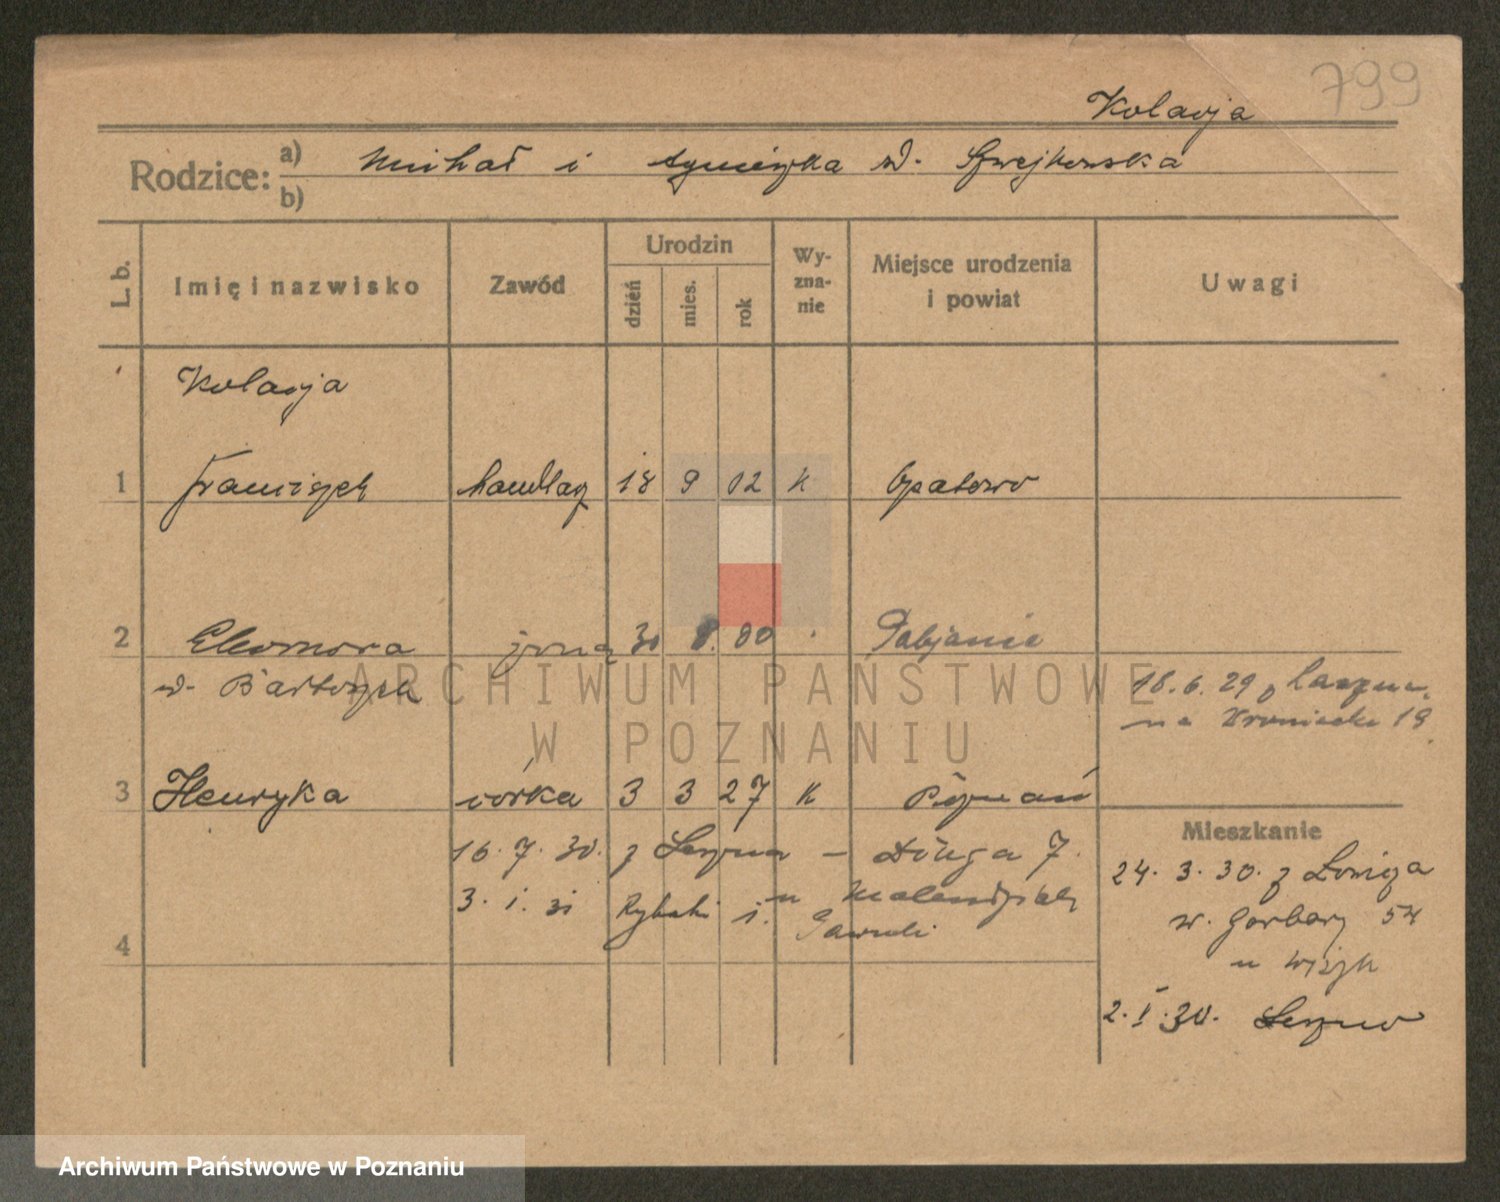 799
Kolacja
Rodzice: a) Michał i Agnieszka d. Szwejkowska
b)
L. b. Imię i nazwisko Zawód Urodzin dzień mies. rok Wy-zna-nie Miejsce urodzenia i powiat Uwagi
Kolacja
1 Franciszek handlarz 18 9 12 k Opatowo
2 Eleonora żona 30 8. 00 Pabjanice
d. Bartoszek 18. 6. 29 z Leszna
na 19
3 Henryka córka 3 3 27 k Poznań
Mieszkanie
16. 7. 30. z Leszna — Długa 7.
24. 3. 30. z
3. 1. 31 Rybaki u
w. Garbary 54
4
u
2. V. 30. Leszno
ARCHIWUM PAŃSTWOWE
W POZNANIU
Archiwum Państwowe w Poznaniu